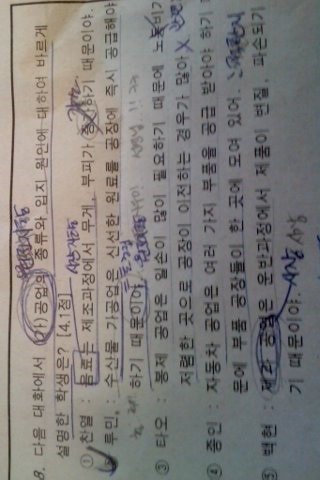 8. 다음 대화에서 (가) 공업의 종류와 입지 원인에 대하여 바르게
설명한 학생은? [4.1점]
① 찬열 : 음료는 제조과정에서 무게, 부피가 증가하기 때문이야.
② 루민 : 수산물 가공업은 신선한 원료를 공장에 즉시 공급해야
하기 때문이야.
③ 타오 : 봉제 공업은 일손이 많이 필요하기 때문에 노동비가
저렴한 곳으로 공장이 이전하는 경우가 많아
④ 종인 : 자동차 공업은 여러 가지 부품을 공급 받아야 하기
문에 부품 공장들이 한 곳에 모여 있어.
⑤ 백현 : 공업은 운반과정에서 제품이 변질, 파손되기
기 때문이야